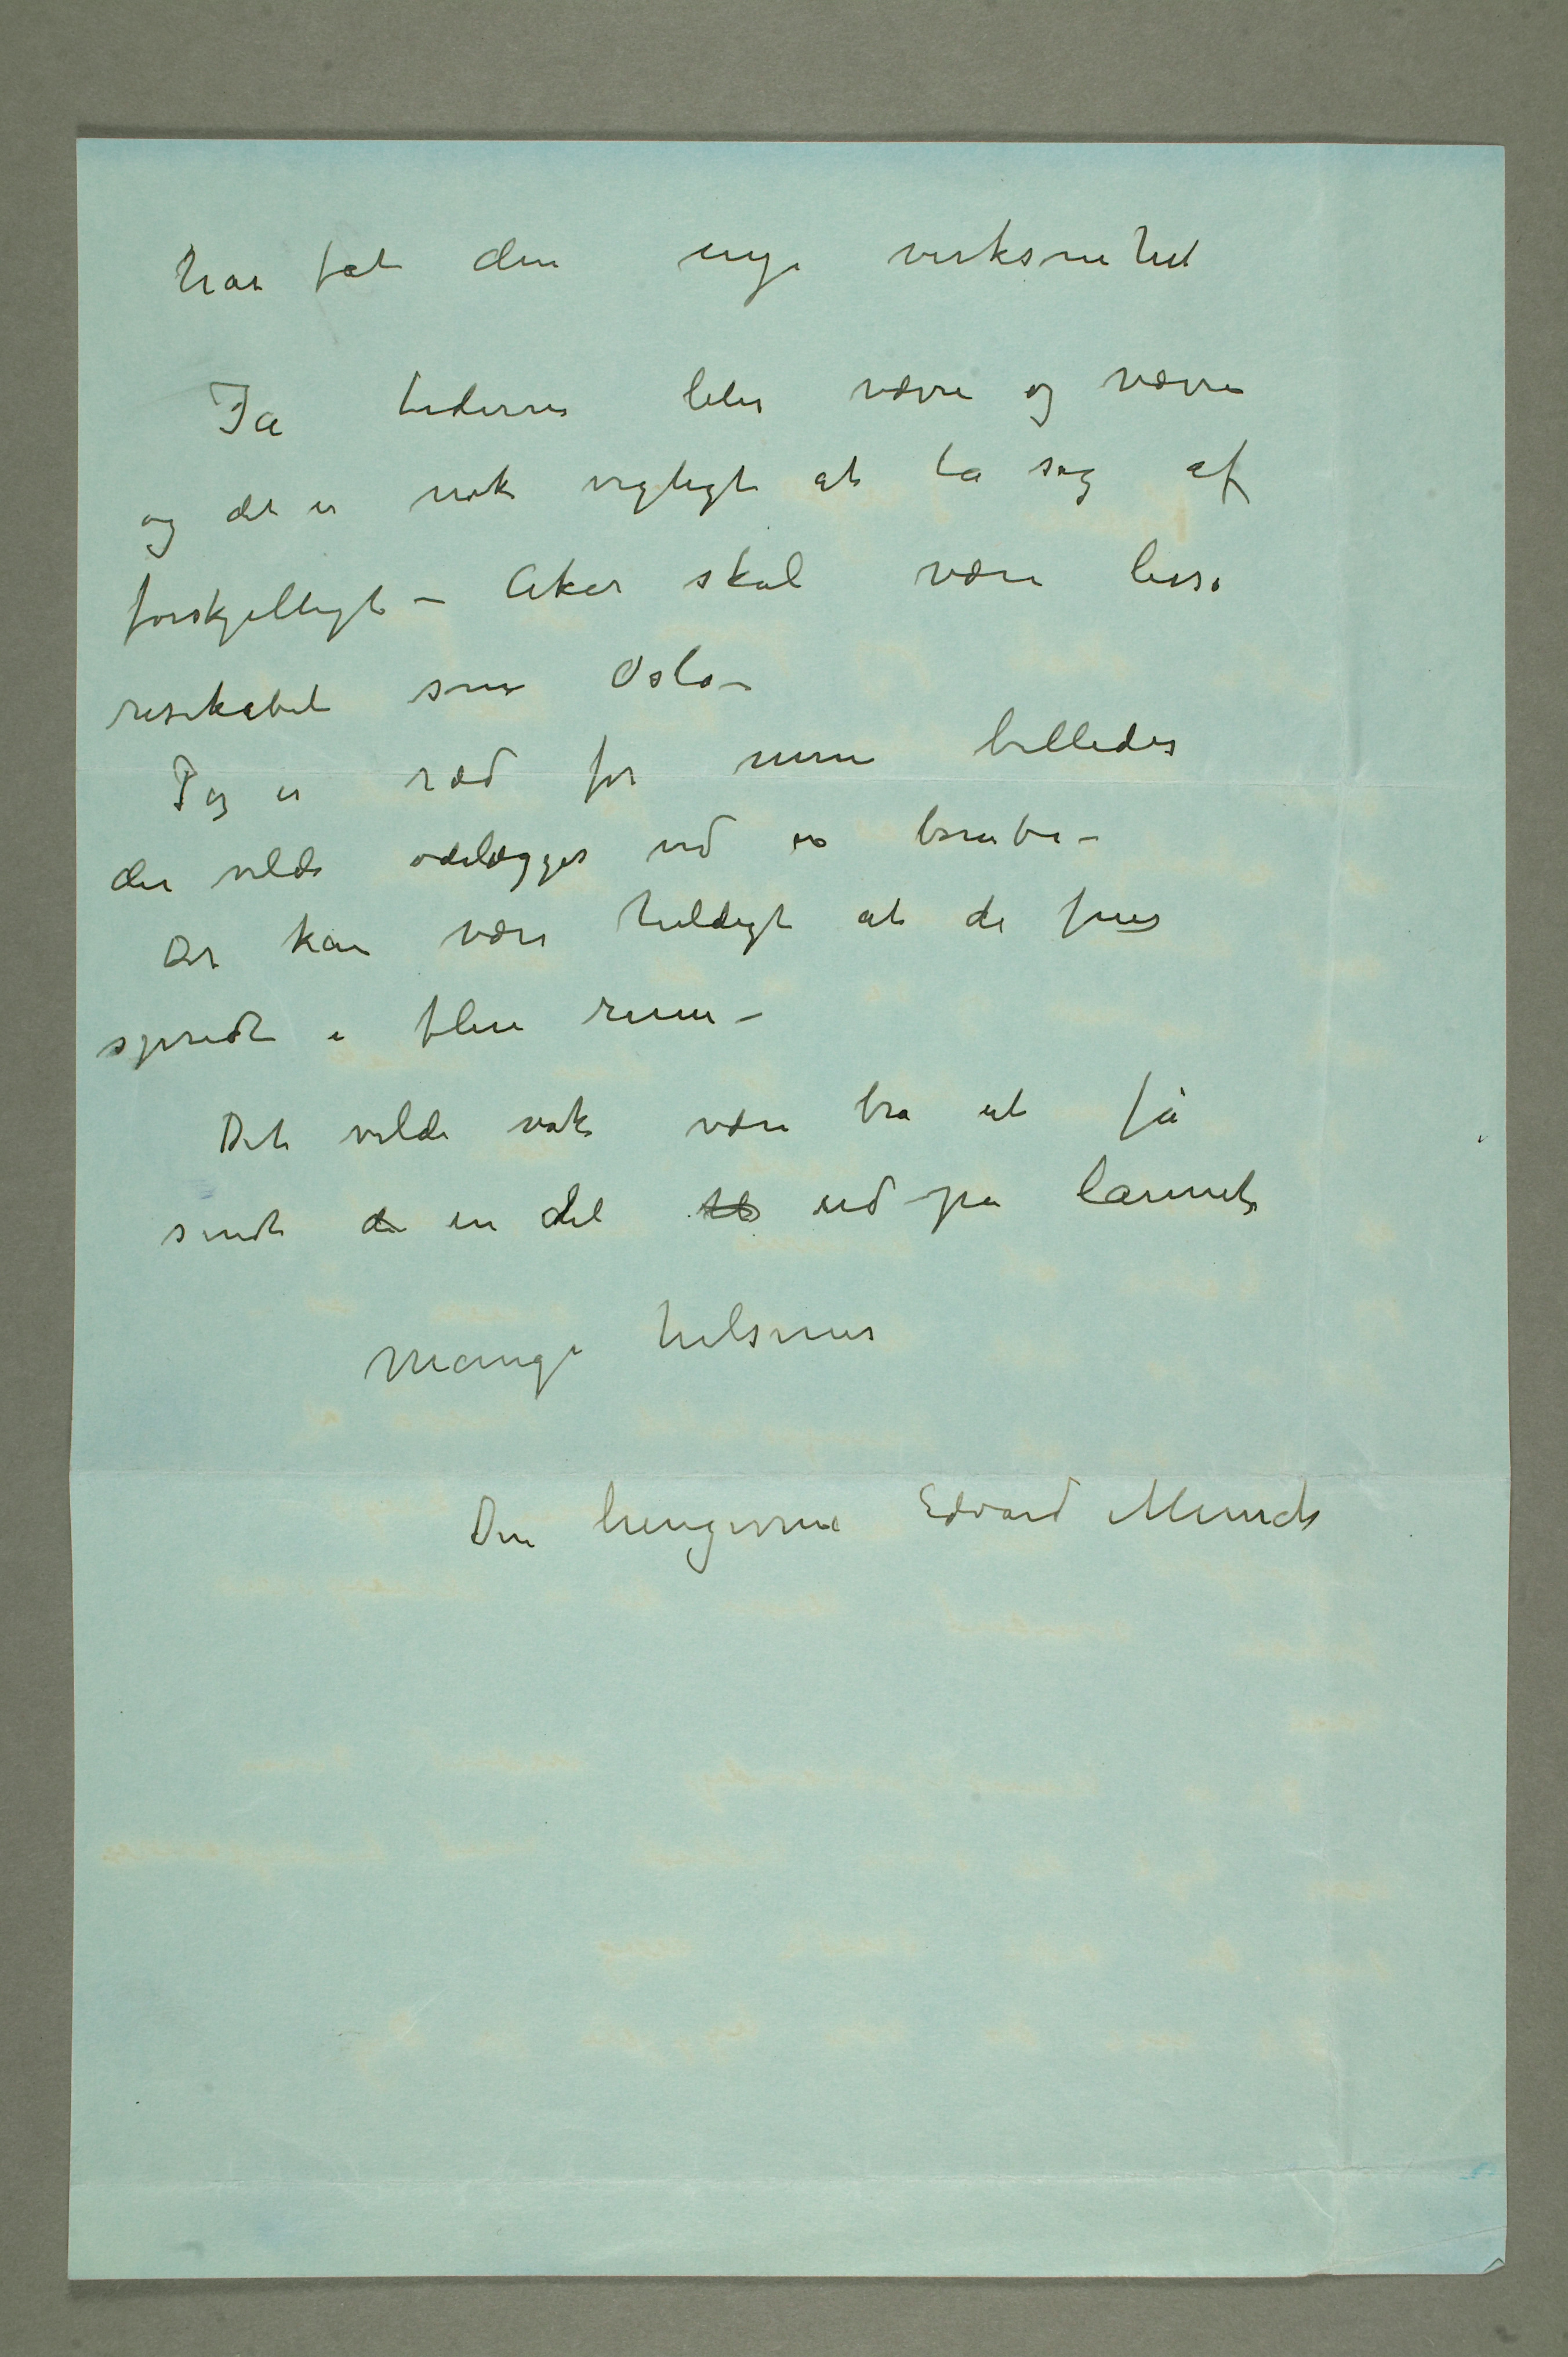 har fåt den nye virksomhet
Ja tiderne blir værre og værre
og det er nok vigtigt at ta sig af
forskjelligt – Aker skal være lisså
resikabelt som Oslo –
Jeg er ræd for mine billeder
der vilde ødelægges ved en bombe –
Det kan være heldigt at de
spredt i flere rum –
Det vilde nok være bra at få
sendt de en del ud på lannet
Mange hilsener
Din hengivne Edvard Munch